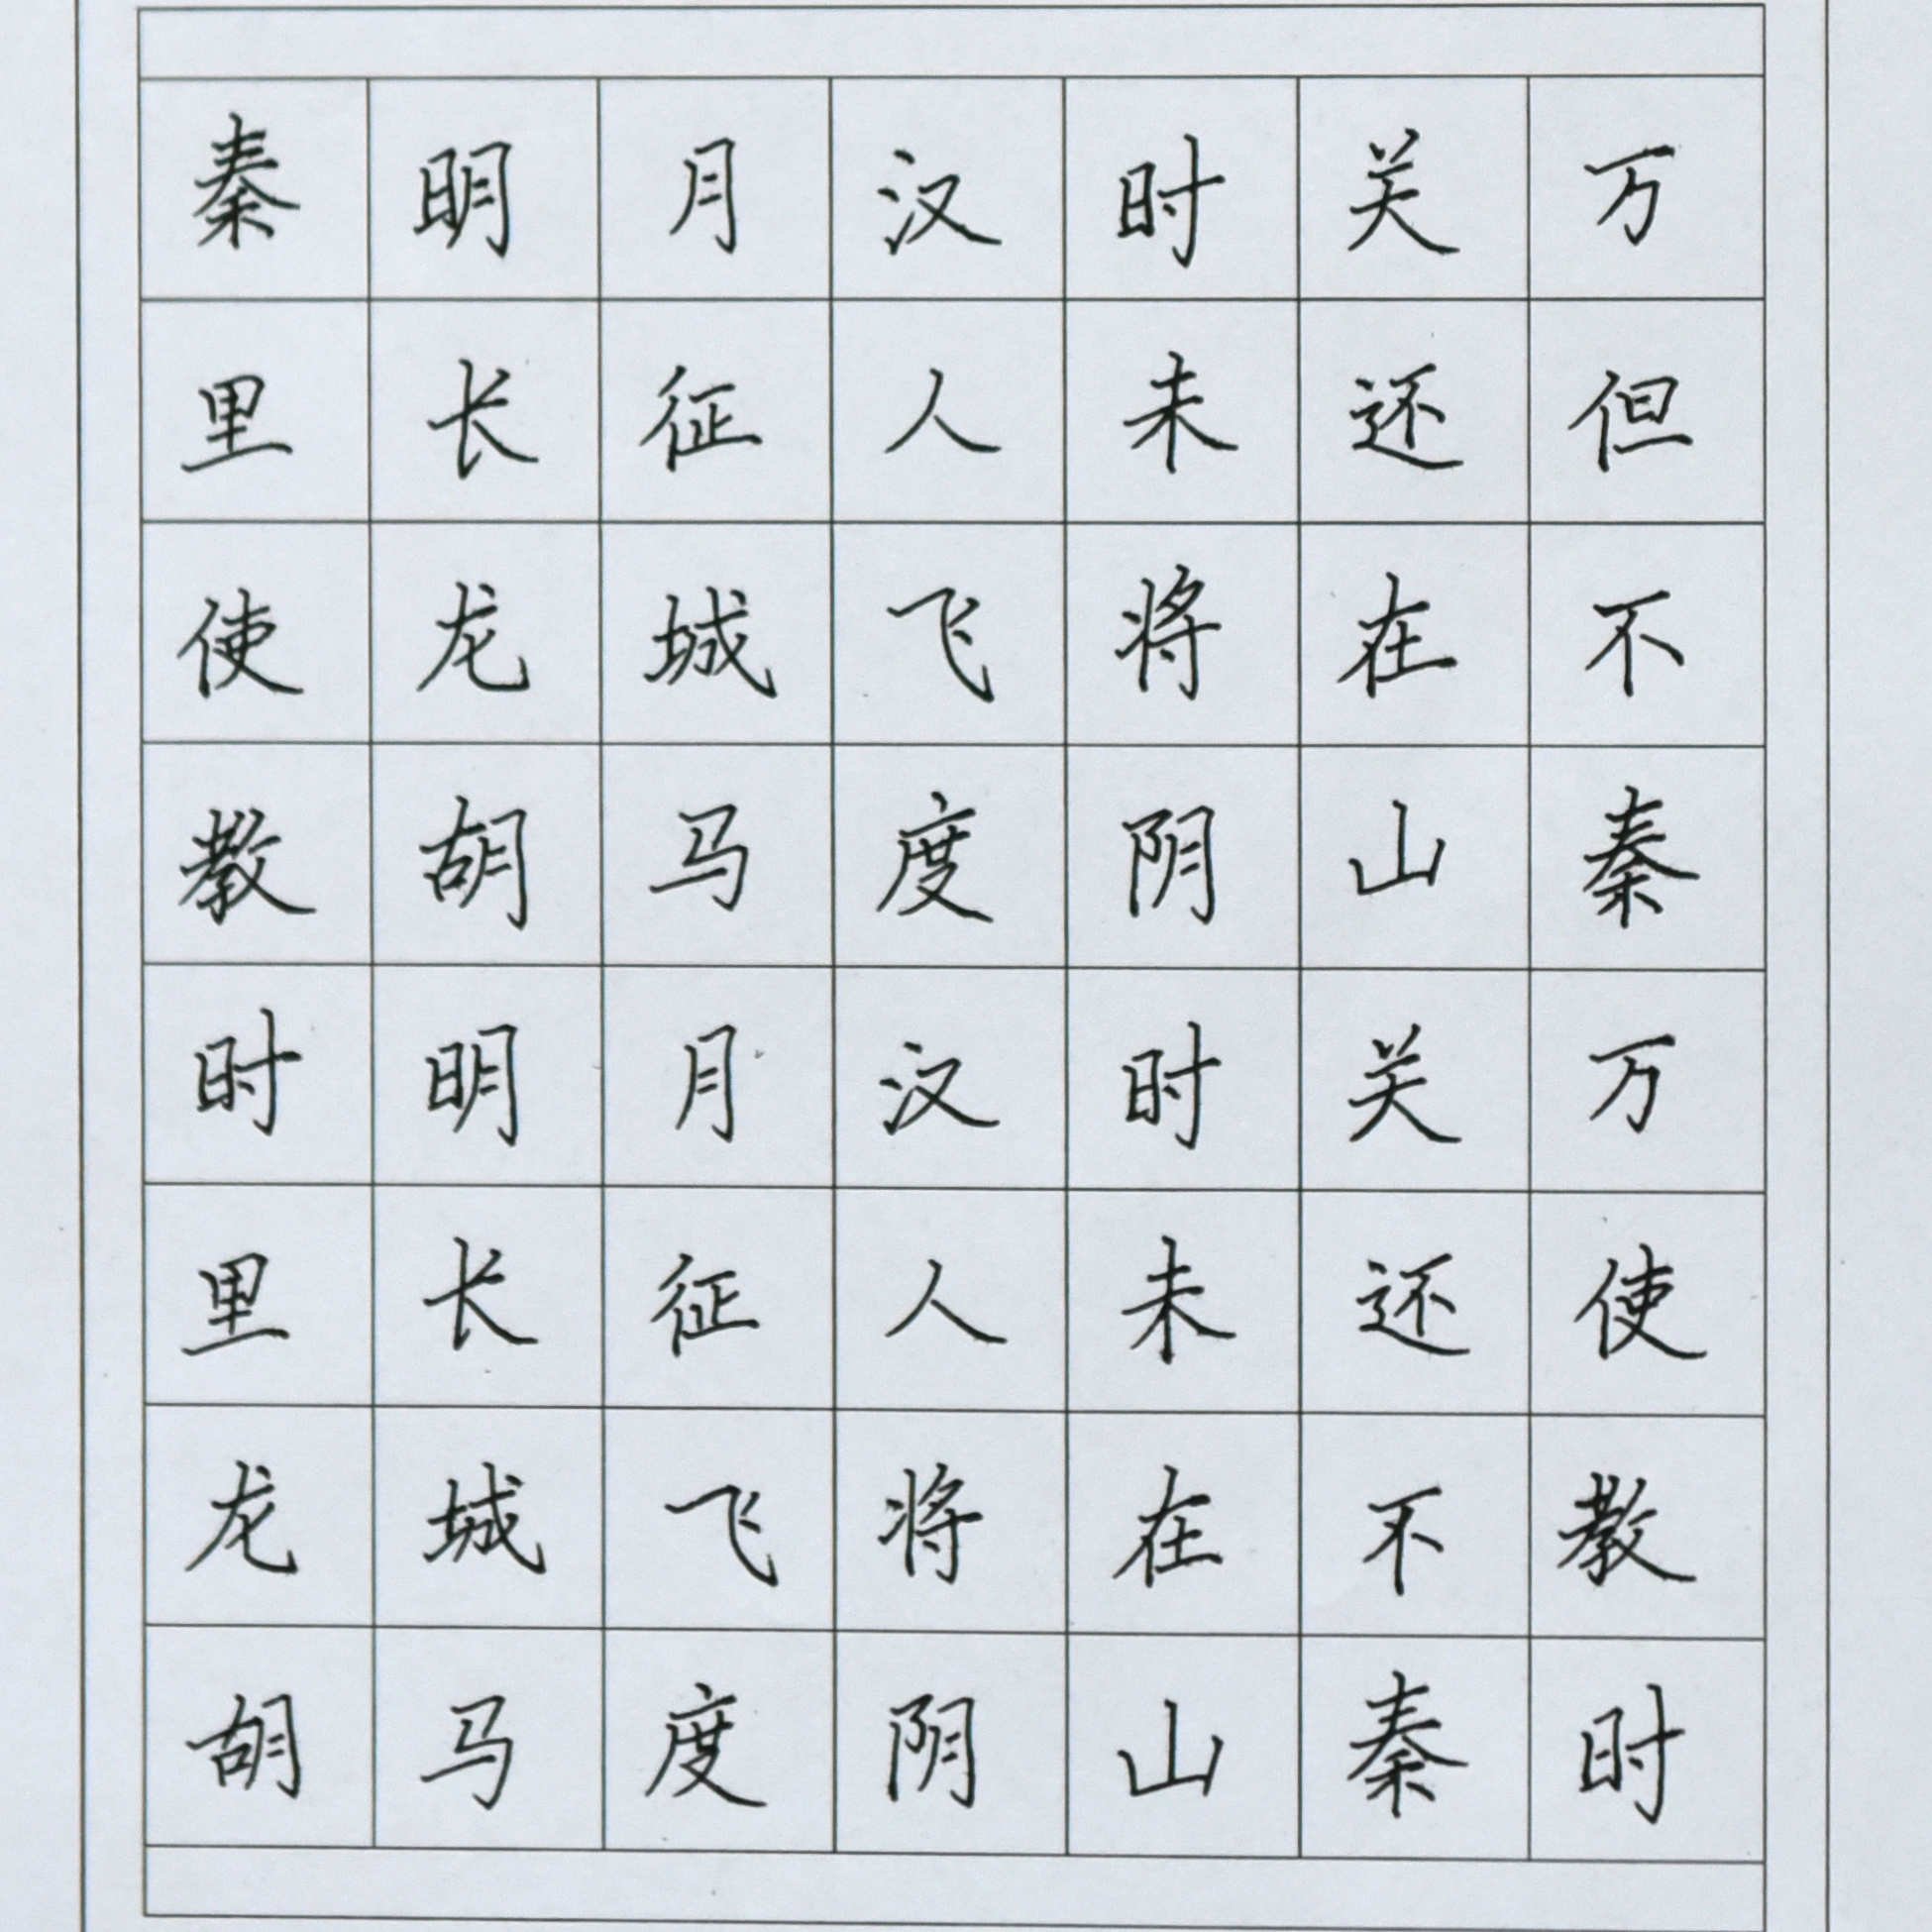 秦明月汉时关万
里长征人未还但
使龙城飞将在不
教胡马度阴山秦
时明月汉时关万
里长征人未还使
龙城飞将在不教
胡马度阴山秦时